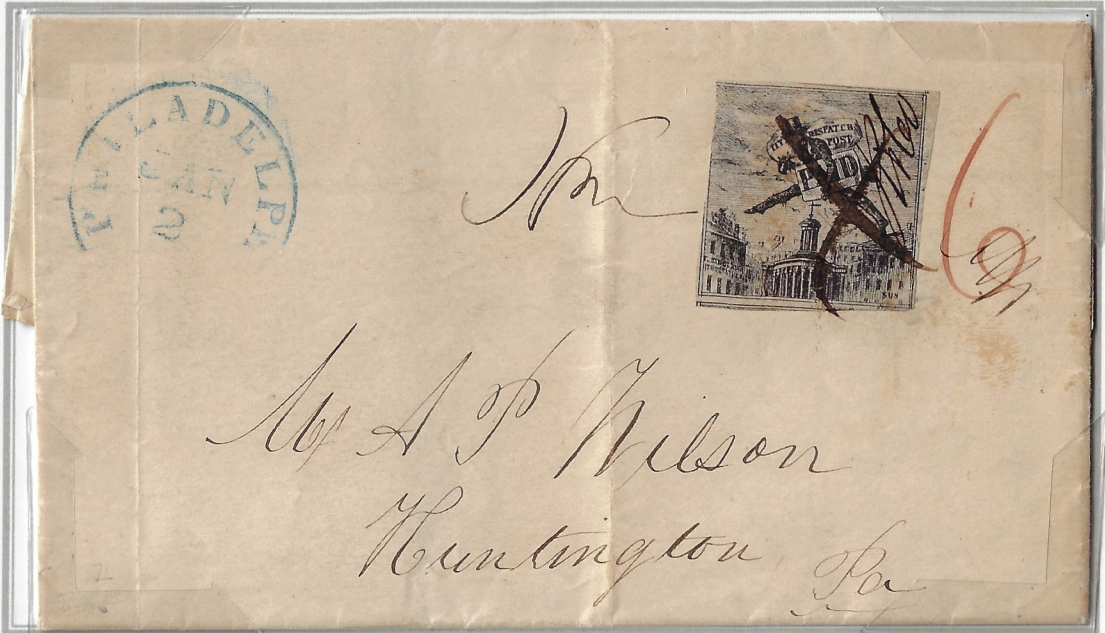 PHILADELPH
JAN
2
CITY DESPATCH
POST
PAID
6
Mr A P Wilson
Huntington Pa